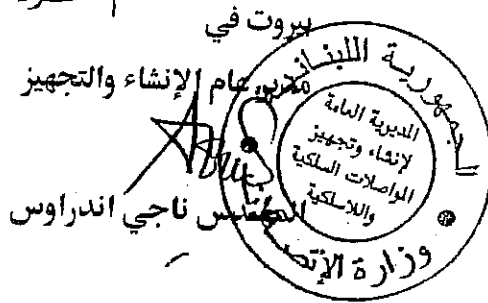 بيروت في
مدير عام الإنشاء والتجهيز
المهندس ناجي اندراوس
الجمهورية اللبنانية
المديرية العامة
لإنشاء وتجهيز
المواصلات السلكية
واللاسلكية
وزارة الإتصا